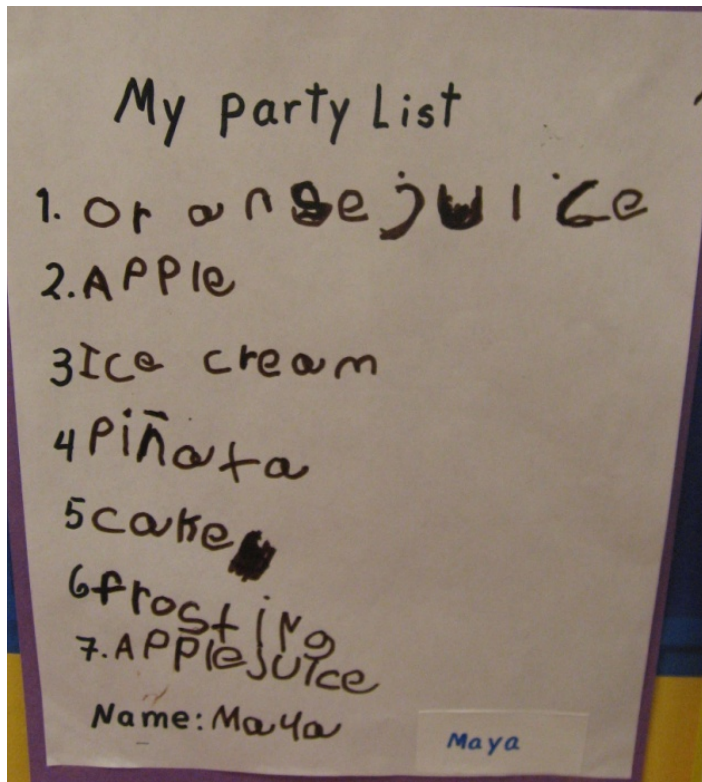 My party List
1. Orange juice
2. APPle
3 Ice cream
4 Piñata
5 cake
6 frosting
7. APPle juice
Name: Maya
Maya